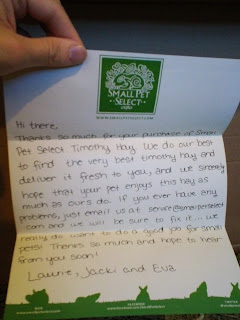 SMALL PET
SELECT
Hi there,
Thanks so much for your purchase of Small
Pet Select Timothy Hay. We do our best
to find the very best timothy hay and
deliver it fresh to you, and we sincerely
hope that your pet enjoys this hay as
much as ours do. If you ever have any
problems, just email us at service@smallpetselect
.com and we will be sure to fix it... we
really do want to do a good job for small
pets! Thanks so much and hope to hear
from you soon!
Laurie, Jacki and Eva